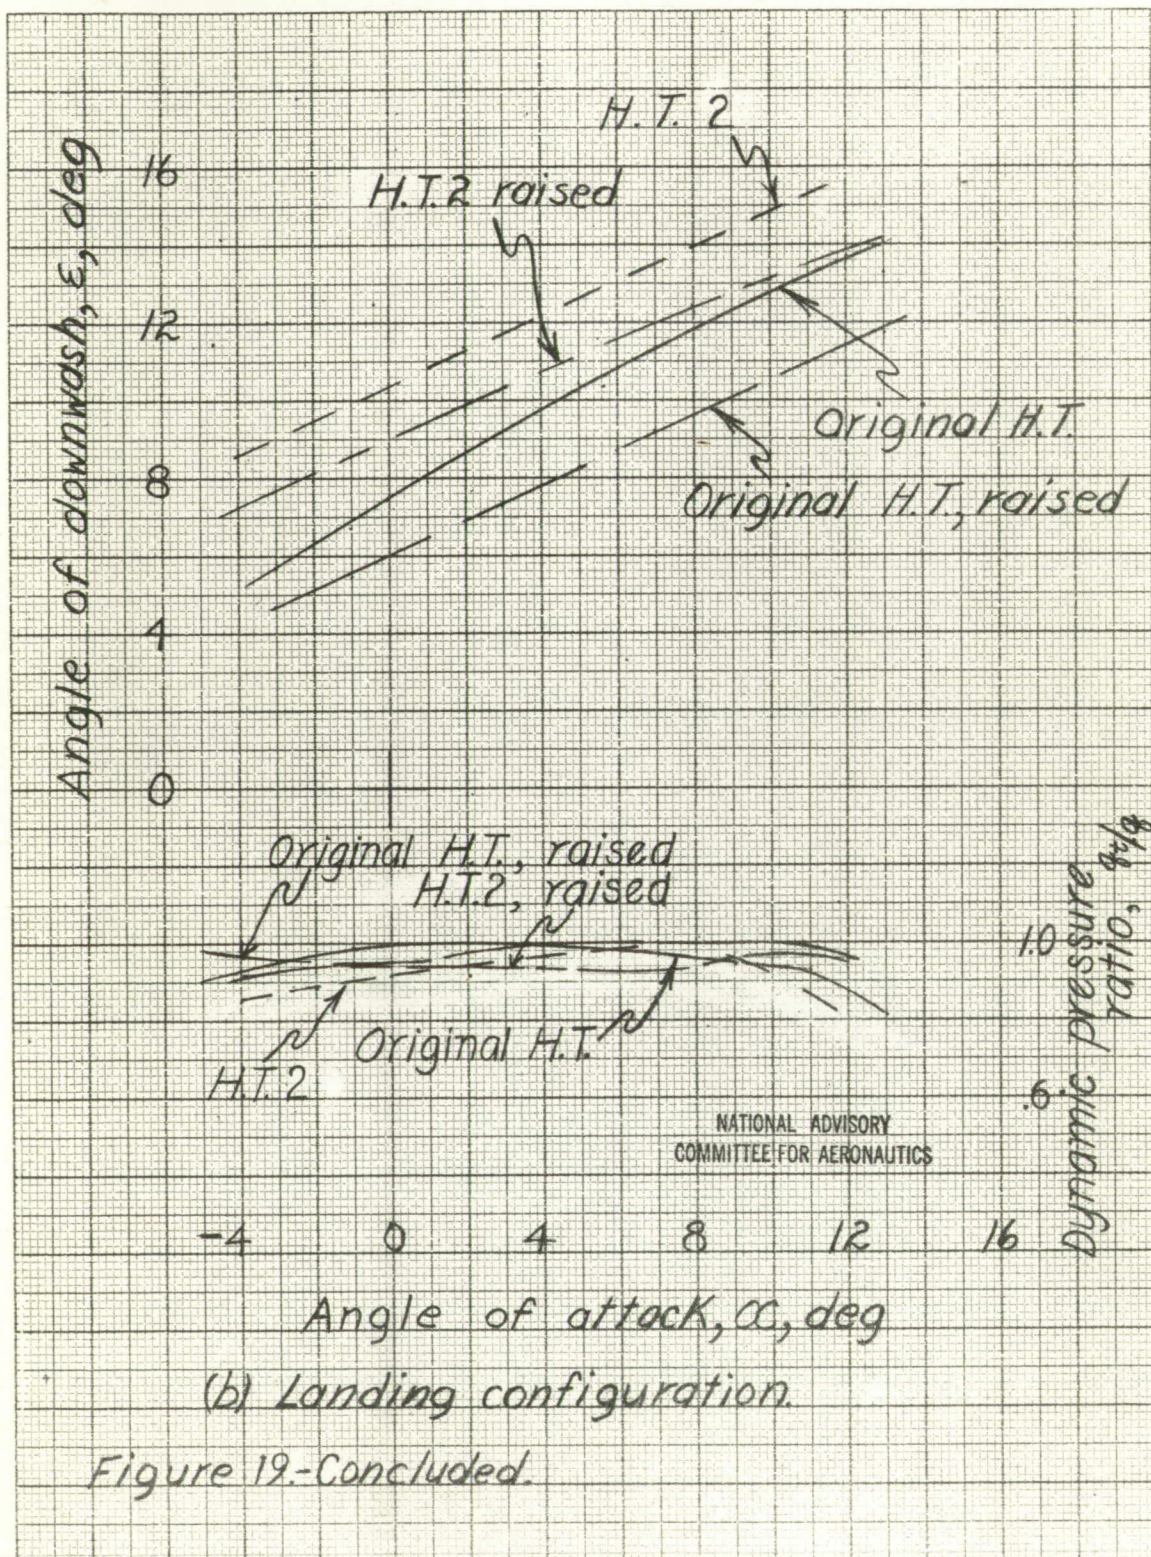 H.T. 2
H.T.2 raised
16
12
8
4
0
Angle of downwash, ε, deg
Original H.T.
Original H.T., raised
Original H.T., raised
H.T.2, raised
H.T.2
Original H.T.
1.0
.6
Dynamic pressure
ratio, qt/q
NATIONAL ADVISORY
COMMITTEE FOR AERONAUTICS
-4 0 4 8 12 16
Angle of attack, α, deg
(b) Landing configuration.
Figure 19.-Concluded.